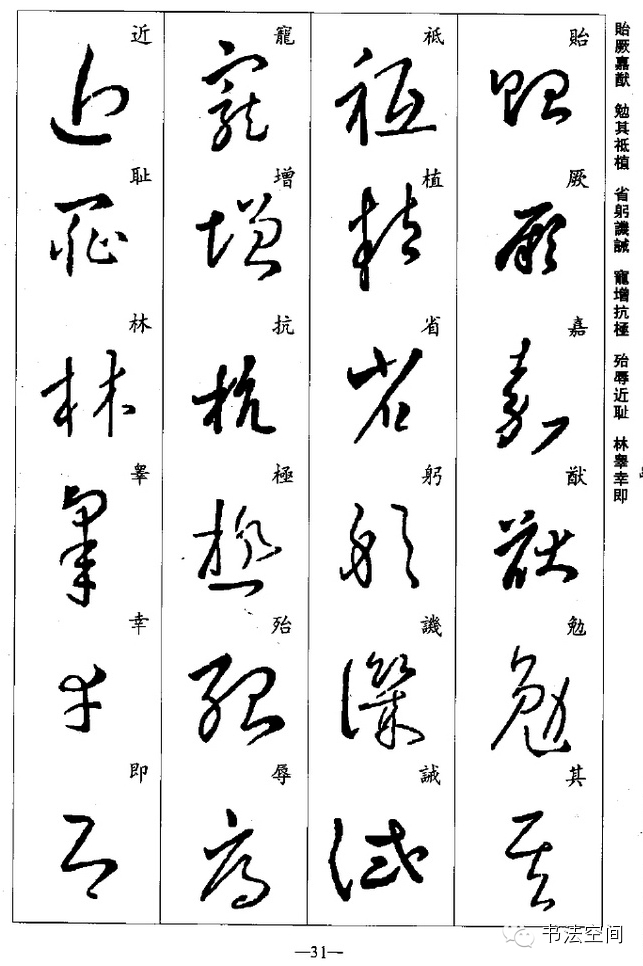 貽厥嘉猷 勉其祗植 省躬譏誡 寵增抗極 殆辱近耻 林睾幸即
貽厥嘉猷勉其
祗植省躬譏誡
寵增抗極殆辱
近耻林睾幸即
—31—
书法空间